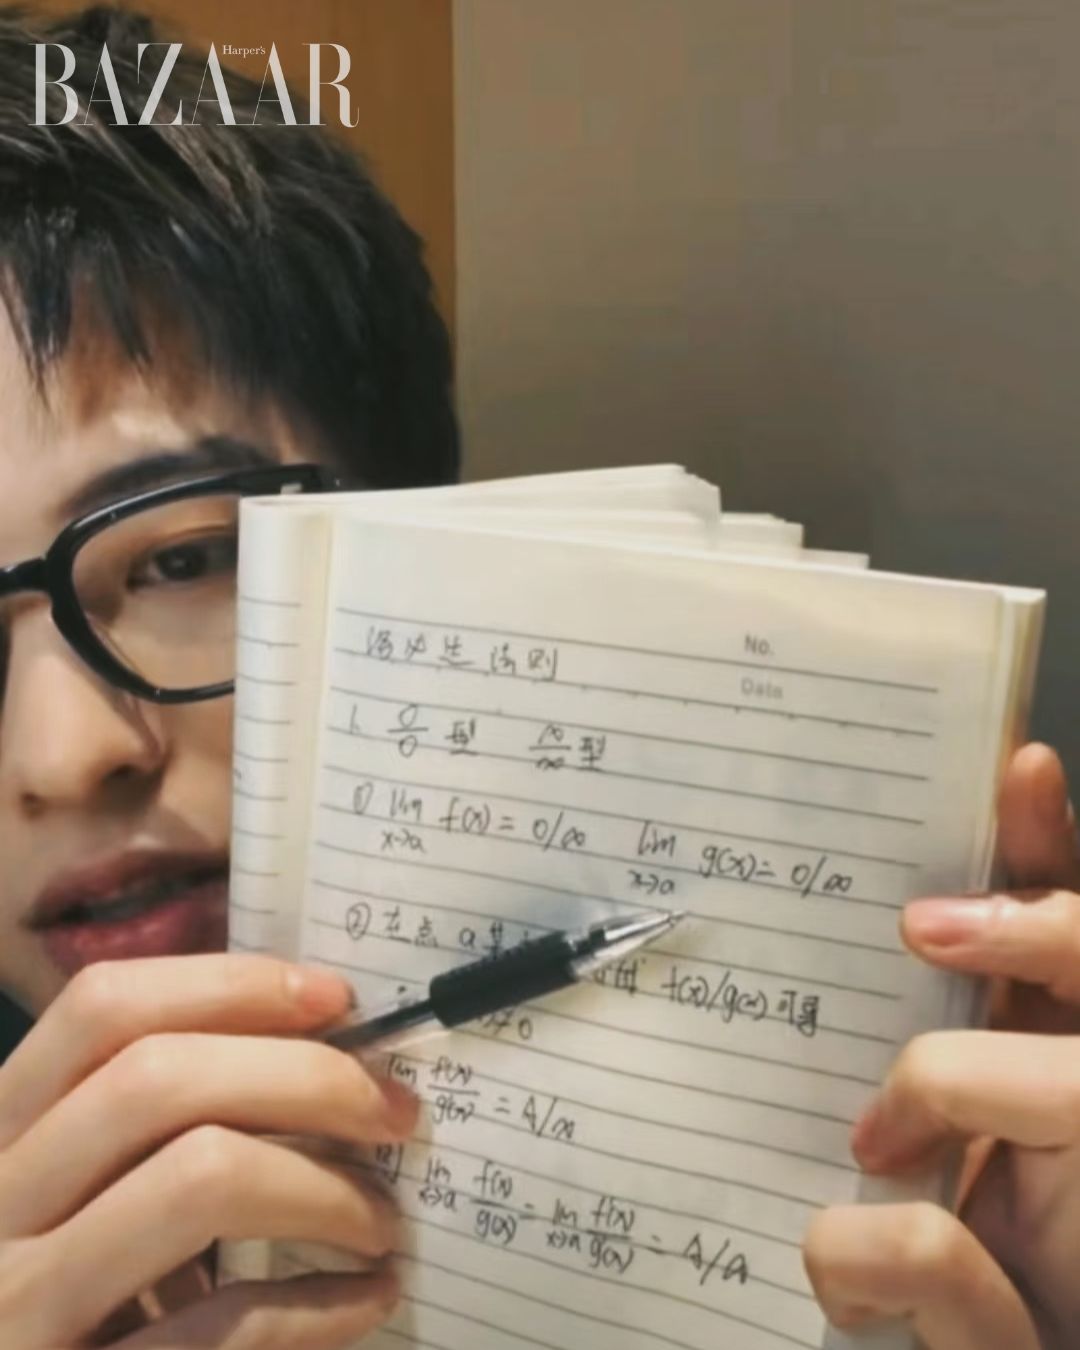 Harper's
BAZAAR
No.
Data
洛必达法则
1. 0/0 型 ∞/∞ 型
① lim x→a f(x) = 0/∞ lim x→a g(x) = 0/∞
② 在点 a f(x)/g(x) 可导
≠0
lim f'(x)/g'(x) = A/∞
则 lim x→a f(x)/g(x) = lim x→a f'(x)/g'(x) = A/∞